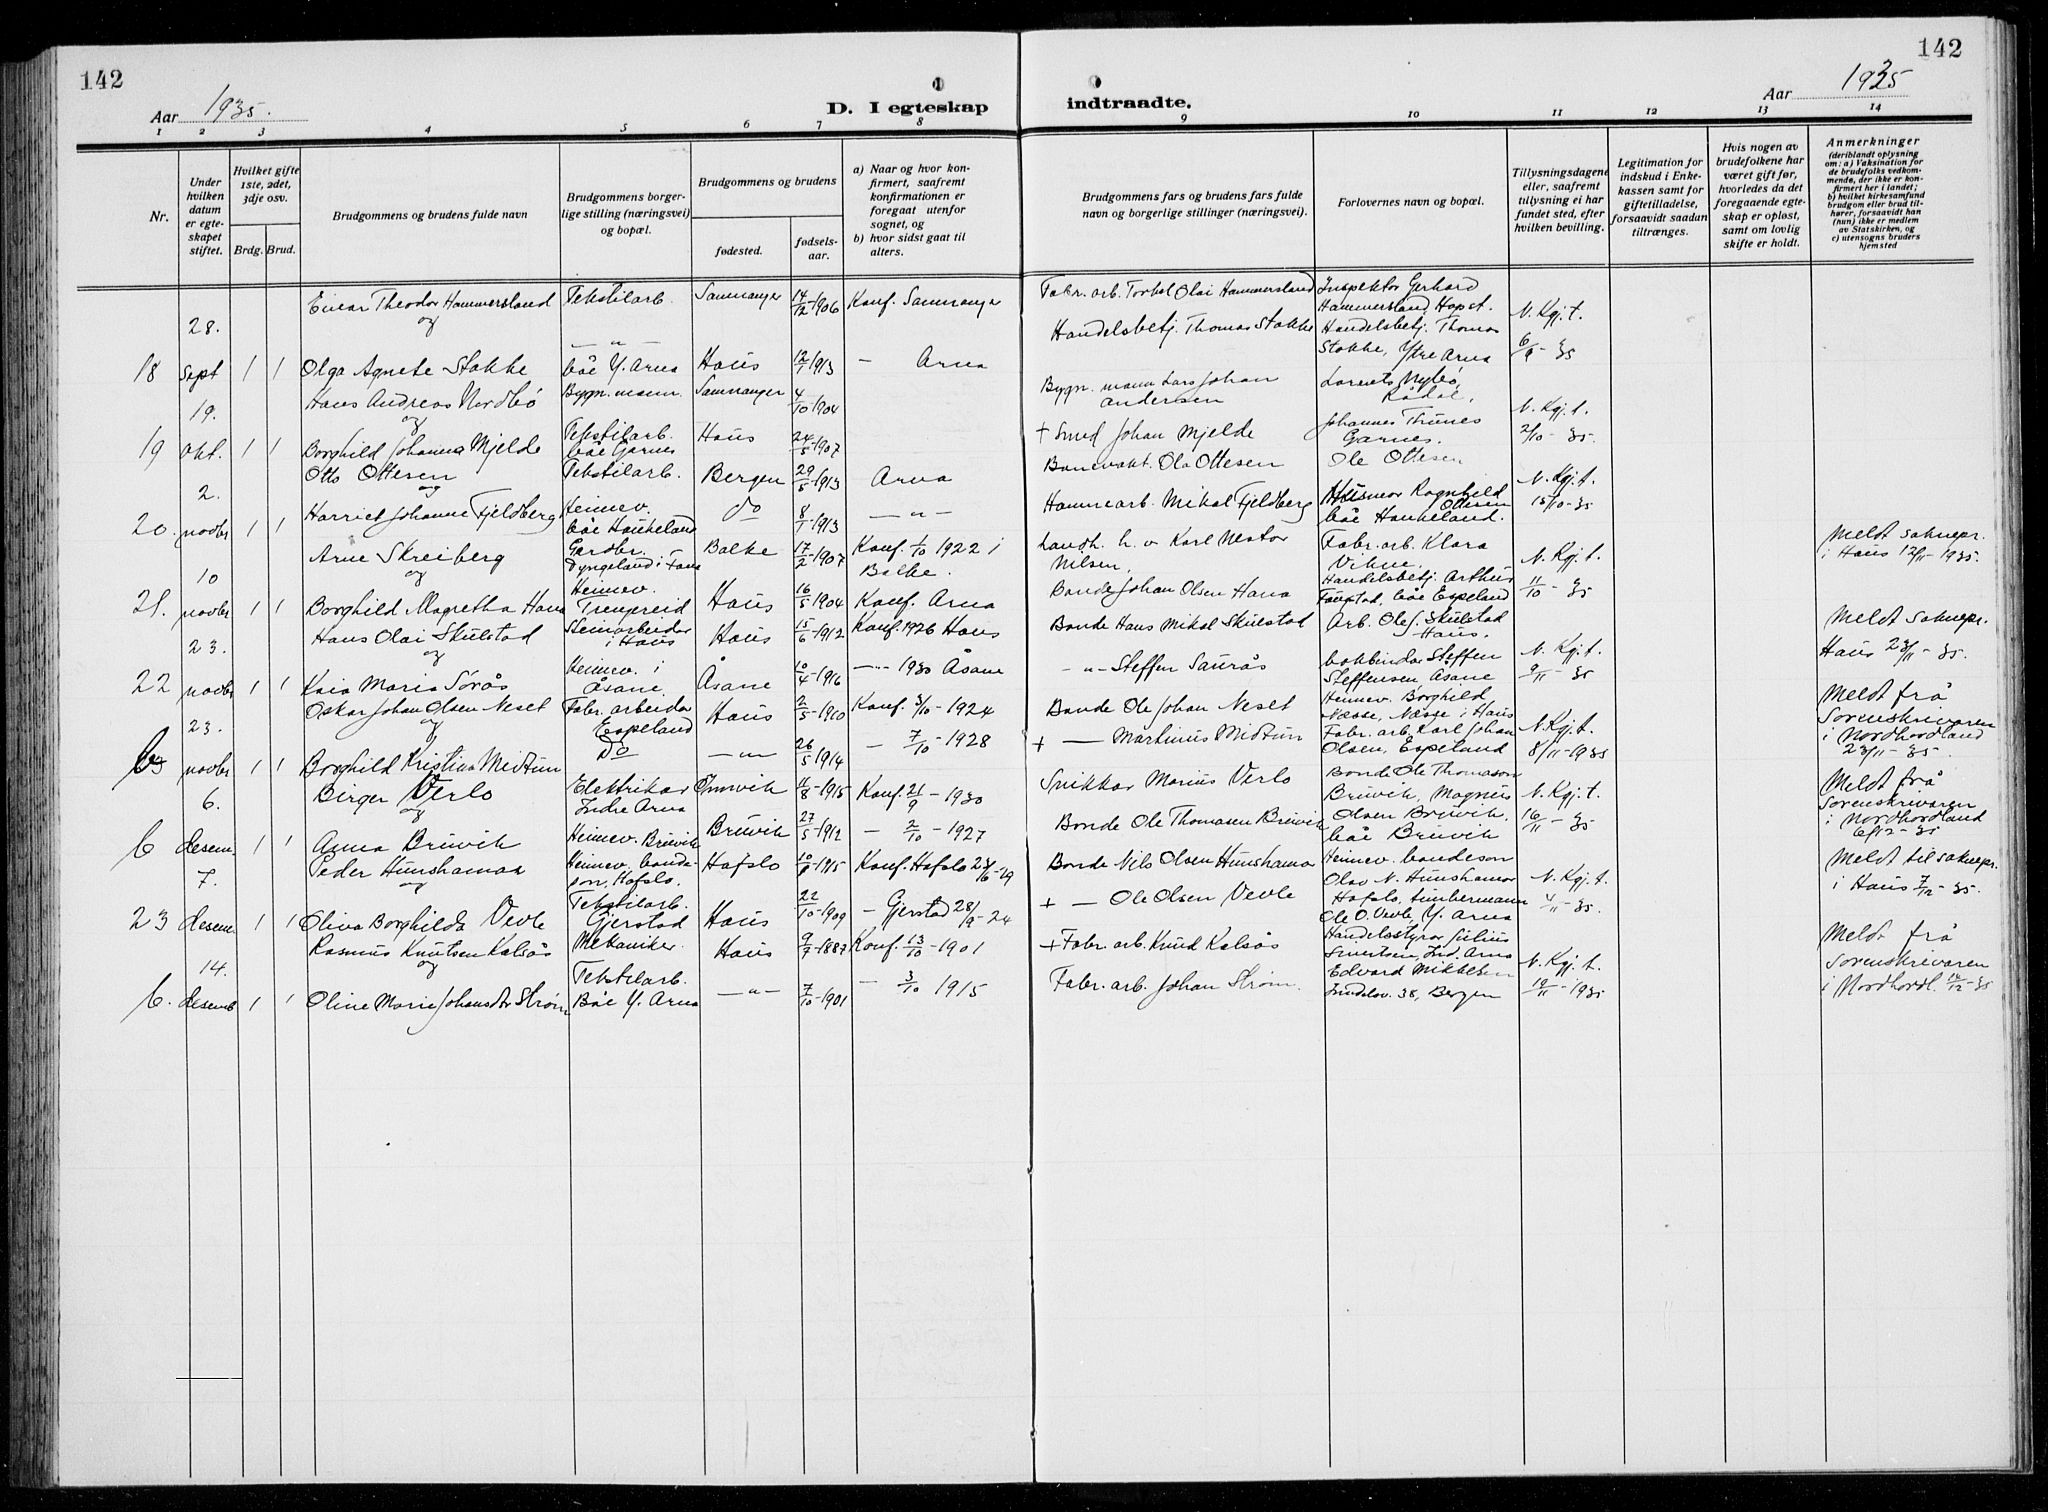 142
142
Aar 1935.
D. I egteskap indtraadte.
Aar 1935
1 2 3 4 5 6 7 8 9 10 11 12 13 14
Nr.
Under hvilken datum er egteskapet stiftet.
Hvilket gifte 1ste, 2det, 3dje osv.
Brdg. Brud.
Brudgommens og brudens fulde navn
Brudgommens borgerlige stilling (næringsvei) og bopæl.
Brudgommens og brudens
fødested.
fødselsaar.
a) Naar og hvor konfirmert, saafremt konfirmationen er foregaat utenfor sognet, og
b) hvor sidst gaat til alters.
Brudgommens fars og brudens fars fulde navn og borgerlige stillinger (næringsvei).
Forlovernes navn og bopæl.
Tillysningsdagene eller, saafremt tillysning ei har fundet sted, efter hvilken bevilling.
Legitimation for indskud i Enkekassen samt for giftetilladelse, forsaavidt saadan tiltrænges.
Hvis nogen av brudefolkene har været gift før, hvorledes da det foregaaende egteskap er opløst, samt om lovlig skifte er holdt.
Anmerkninger (deriblandt oplysning om: a) Vaksination for de brudefolks vedkommende, der ikke er konfirmert her i landet; b) hvilket kirkesamfund brudgom eller brud tilhører, forsaavidt han (hun) ikke er medlem av Statskirken, og c) utensogns bruders hjemsted
18 28. Sept 1 1 Einar Theodor Hammersland Tekstilarb. Samnanger 14/12-1906 Konf. Samnanger Fabr. arb. Torkel Olai Hammersland Inspektør Gerhard Hammersland, Hopst. N. Kgj. t. 6/9-35
og
Olga Agnete Stokke — " — båe Y. Arna Haus 12/1-1913 — Arna Handelsbetj. Thomas Stokke Handelsbetj. Thomas Stokke, Ytre Arna
19 19. Okt. 1 1 Hans Andreas Nordbø Bygn. mann. Samnanger 4/10-1904 Bygn. mann Lars Johan Andersen Lorents Nybø, Rådal. N. Kgj. t. 2/10-35.
og
Borghild Johanna Mjelde Tekstilarb. båe Garnes Haus 24/5-1907 + Smed Johan Mjelde Johannes Trunes Garnes.
20. 2. novbr 1 1 Otto Ottesen Tekstilarb. Bergen 29/5-1913 Arna Banevakt. Ole Ottesen Ole Ottesen N. Kgj. t. 15/10-35
og
Harriet Johanne Fjeldberg Heimev. båe Haukeland do 8/1-1913 — " — Hamnearb. Mikal Fjeldberg Husmor Ragnhild Ottesen båe Haukeland.
21. 10 novbr 1 1 Arne Skreiberg Gardbr. Dyngeland i Fana Balke 17/2-1907 Konf. 1/10 1922 i Balke. Landh. h. v Karl Nestor Nilsen, Fabr. arb. Klara Vikne. N. Kgj. t. 11/10-35 Meldt soknepr. i Haus 12/11-1935.
og
Borghild Magretha Hana Heimev. Trengereid Haus 16/5-1904 Konf. Arna Bonde Johan Olsen Hana Handelsbetj. Arthur Faustad, båe Espeland
22 23. novbr 1 1 Hans Olai Skulstad Steinarbeidar i Haus Haus 15/6-1912 Konf. 1926 Haus Bonde Hans Mikal Skulstad Arb. Olaf Skulstad Haus. N. Kgj. t. 9/11-35 Meldt soknepr. Haus 23/11-35.
og
Kaia Maria Sørås Heimev. i Åsane. Åsane 10/4-1916 — " — 1930 Åsane — " — Steffen Saurås bokbindar Steffen Steffensen, Åsane
b 23. novbr 1 1 Oskar Johan Olsen Neset Fabr. arbeidar Espeland Haus 2/5-1900 Konf. 5/10-1924 Bonde Ole Johan Neset Heimev. Borghild Næsse, Næsse i Haus N. Kgj. t. 8/11-1935 Meldt frå Sorenskrivaren i Nordhordland 23/11-35.
og
Borghild Kristina Midtun do — " — 26/5-1914 — 7/10-1928 + — Martinus Midtun Fabr. arb. Karl Johan Olsen, Espeland
b 6. desem. 1 1 Birger Verlo Elektrikar Indre Arna 11/8-1915 Konf. 21/9-1930 Snikkar Marius Verlo Bonde Ole Thomason Bruvik, Magnus N. Kgj. t. 16/11-35 Meldt frå Sorenskrivaren i Nordhordland 6/12-35
og
Anna Bruvik Heimev. Bruvik Bruvik 27/5-1912 — 2/10-1927 Bonde Ole Thomasen Bruvik Olsen Bruvik. båe Bruvik
23 7. desem 1 1 Peder Hunshamar Heimev. bondeson, Hafslo. Hafslo 1915 Konf. Hafslo 23/6-29 Bonde Nils Olsen Hunshamar Heimev. bondeson Olav N. Hunshamar Hafslo, tømbermann N. Kgj. t. 4/11-35. Meldt til soknepr. i Haus 7/12-35.
og
Oliva Borghilda Vevle Tekstilarb. Gjerstad Haus 22/10-1909 — Gjerstad 28/9-24 + — Ole Olsen Vevle Ole O. Vevle, Y. Arna
b. 14. desemb 1 1 Rasmus Knutsen Kalsås Mekaniker. Haus 9/7-1887 Konf. 13/10-1901 + Fabr. arb. Knud Kalsås Handelsstyrar Julius Sivertsen, Ind. Arna N. Kgj. t. 19/11-1935 Meldt frå Sorenskrivaren i Nordhordl. 14/12-35
og
Oline Marie Johansdtr Strøm Tekstilarb. Båe Y. Arna — " — 7/10-1901 — 3/10 1915 Fabr. arb. Johan Strøm. Edvard Mikkelsen 38, Bergen